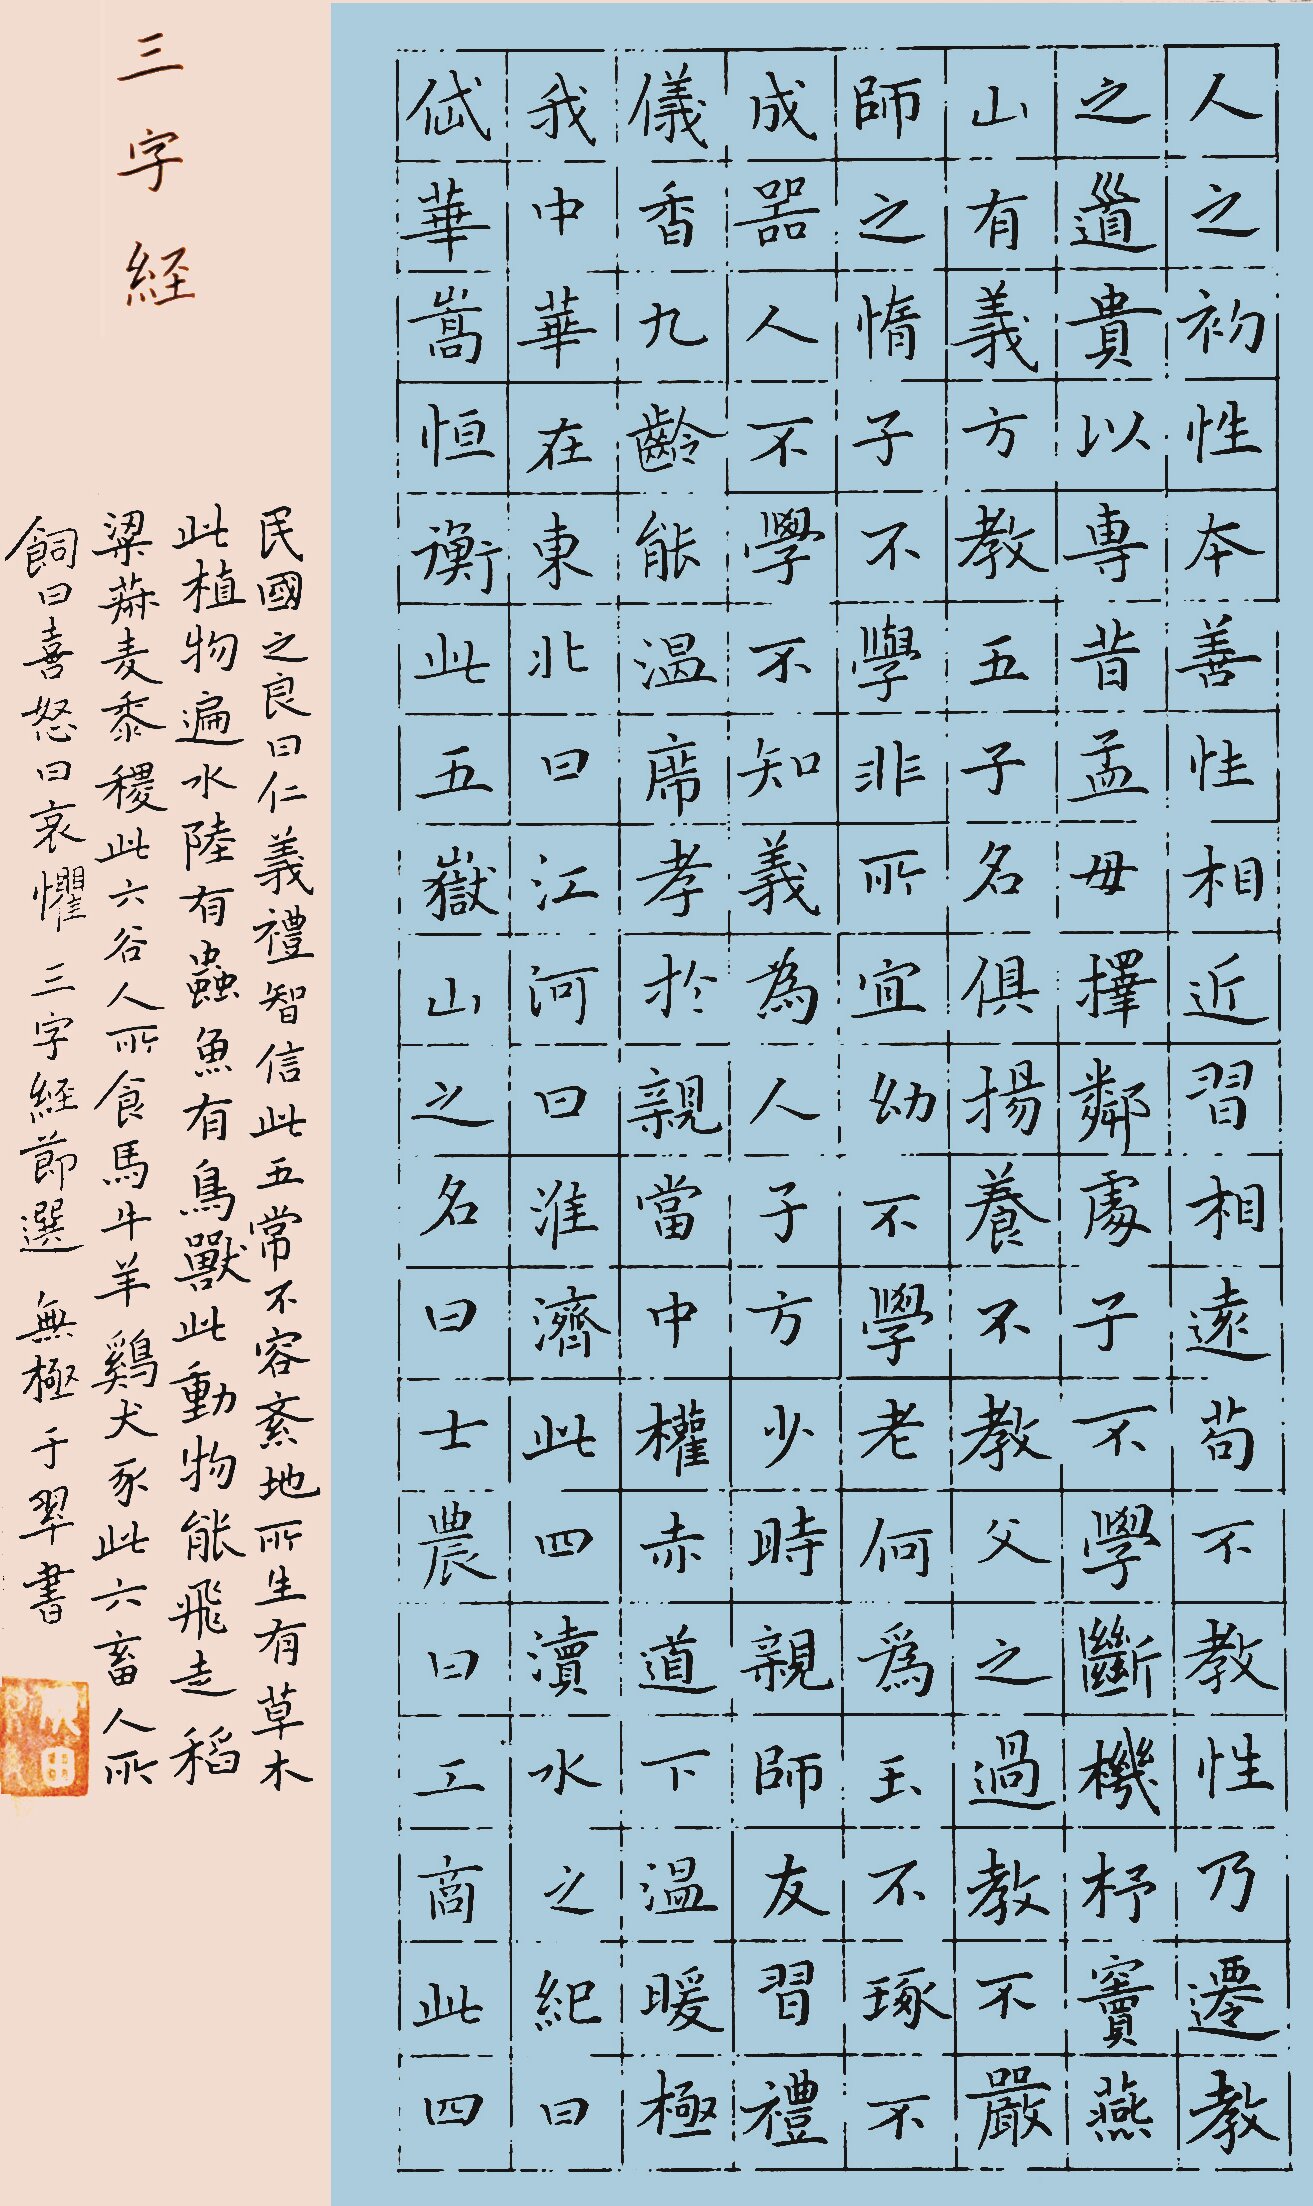 三字経
人之初性本善性相近習相遠苟不教性乃遷教
之道貴以專昔孟母擇鄰處子不學斷機杼竇燕
山有義方教五子名俱揚養不教父之過教不嚴
師之惰子不學非所宜幼不學老何爲玉不琢不
成器人不學不知義為人子方少時親師友習禮
儀香九齡能温席孝於親當中權赤道下温暖極
我中華在東北曰江河曰淮濟此四瀆水之紀曰
岱華嵩恒衡此五嶽山之名曰士農曰工商此四
民國之良曰仁義禮智信此五常不容紊地所生有草木
此植物遍水陸有蟲魚有鳥獸此動物能飛走稻
粱菽麦黍稷此六谷人所食馬牛羊鷄犬豕此六畜人所
飼曰喜怒曰哀懼 三字経節選 無極于翠書